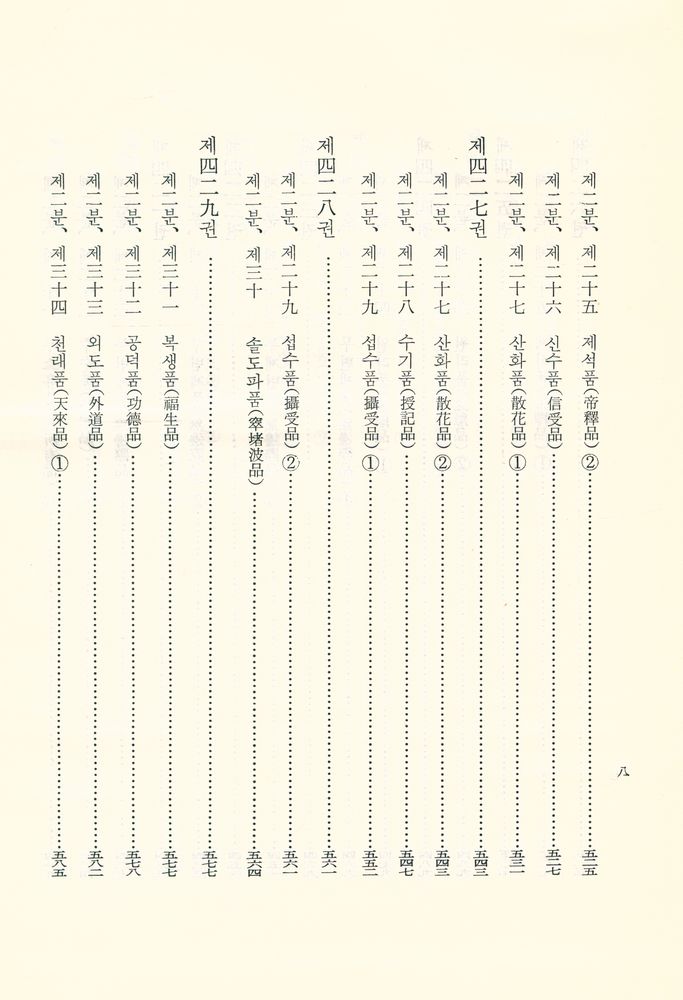 八
제二분、 제二十五 제석품(帝釋品) ②……五二五
제二분、 제二十六 신수품(信受品)……五二七
제二분、 제二十七 산화품(散花品) ①……五三一
제四二七권……五四三
제二분、 제二十七 산화품(散花品) ②……五四三
제二분、 제二十八 수기품(授記品)……五四七
제二분、 제二十九 섭수품(攝受品) ①……五五二
제四二八권……五六一
제二분、 제二十九 섭수품(攝受品) ②……五六一
제二분、 제三十 솔도파품(窣堵波品)……五六四
제四二九권……五七七
제二분、 제三十一 복생품(福生品)……五七七
제二분、 제三十二 공덕품(功德品)……五七八
제二분、 제三十三 외도품(外道品)……五八二
제二분、 제三十四 천래품(天來品) ①……五八五